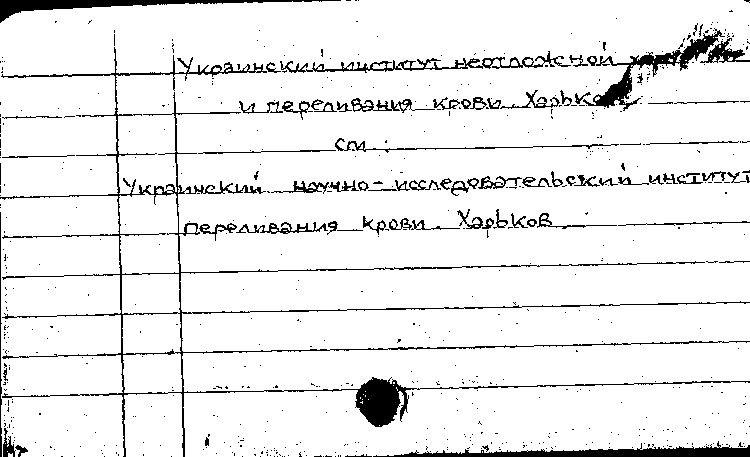 Украинский институт неотложной
и переливания крови. Харьков
см:
Украинский научно-исследовательский институт
переливания крови. Харьков